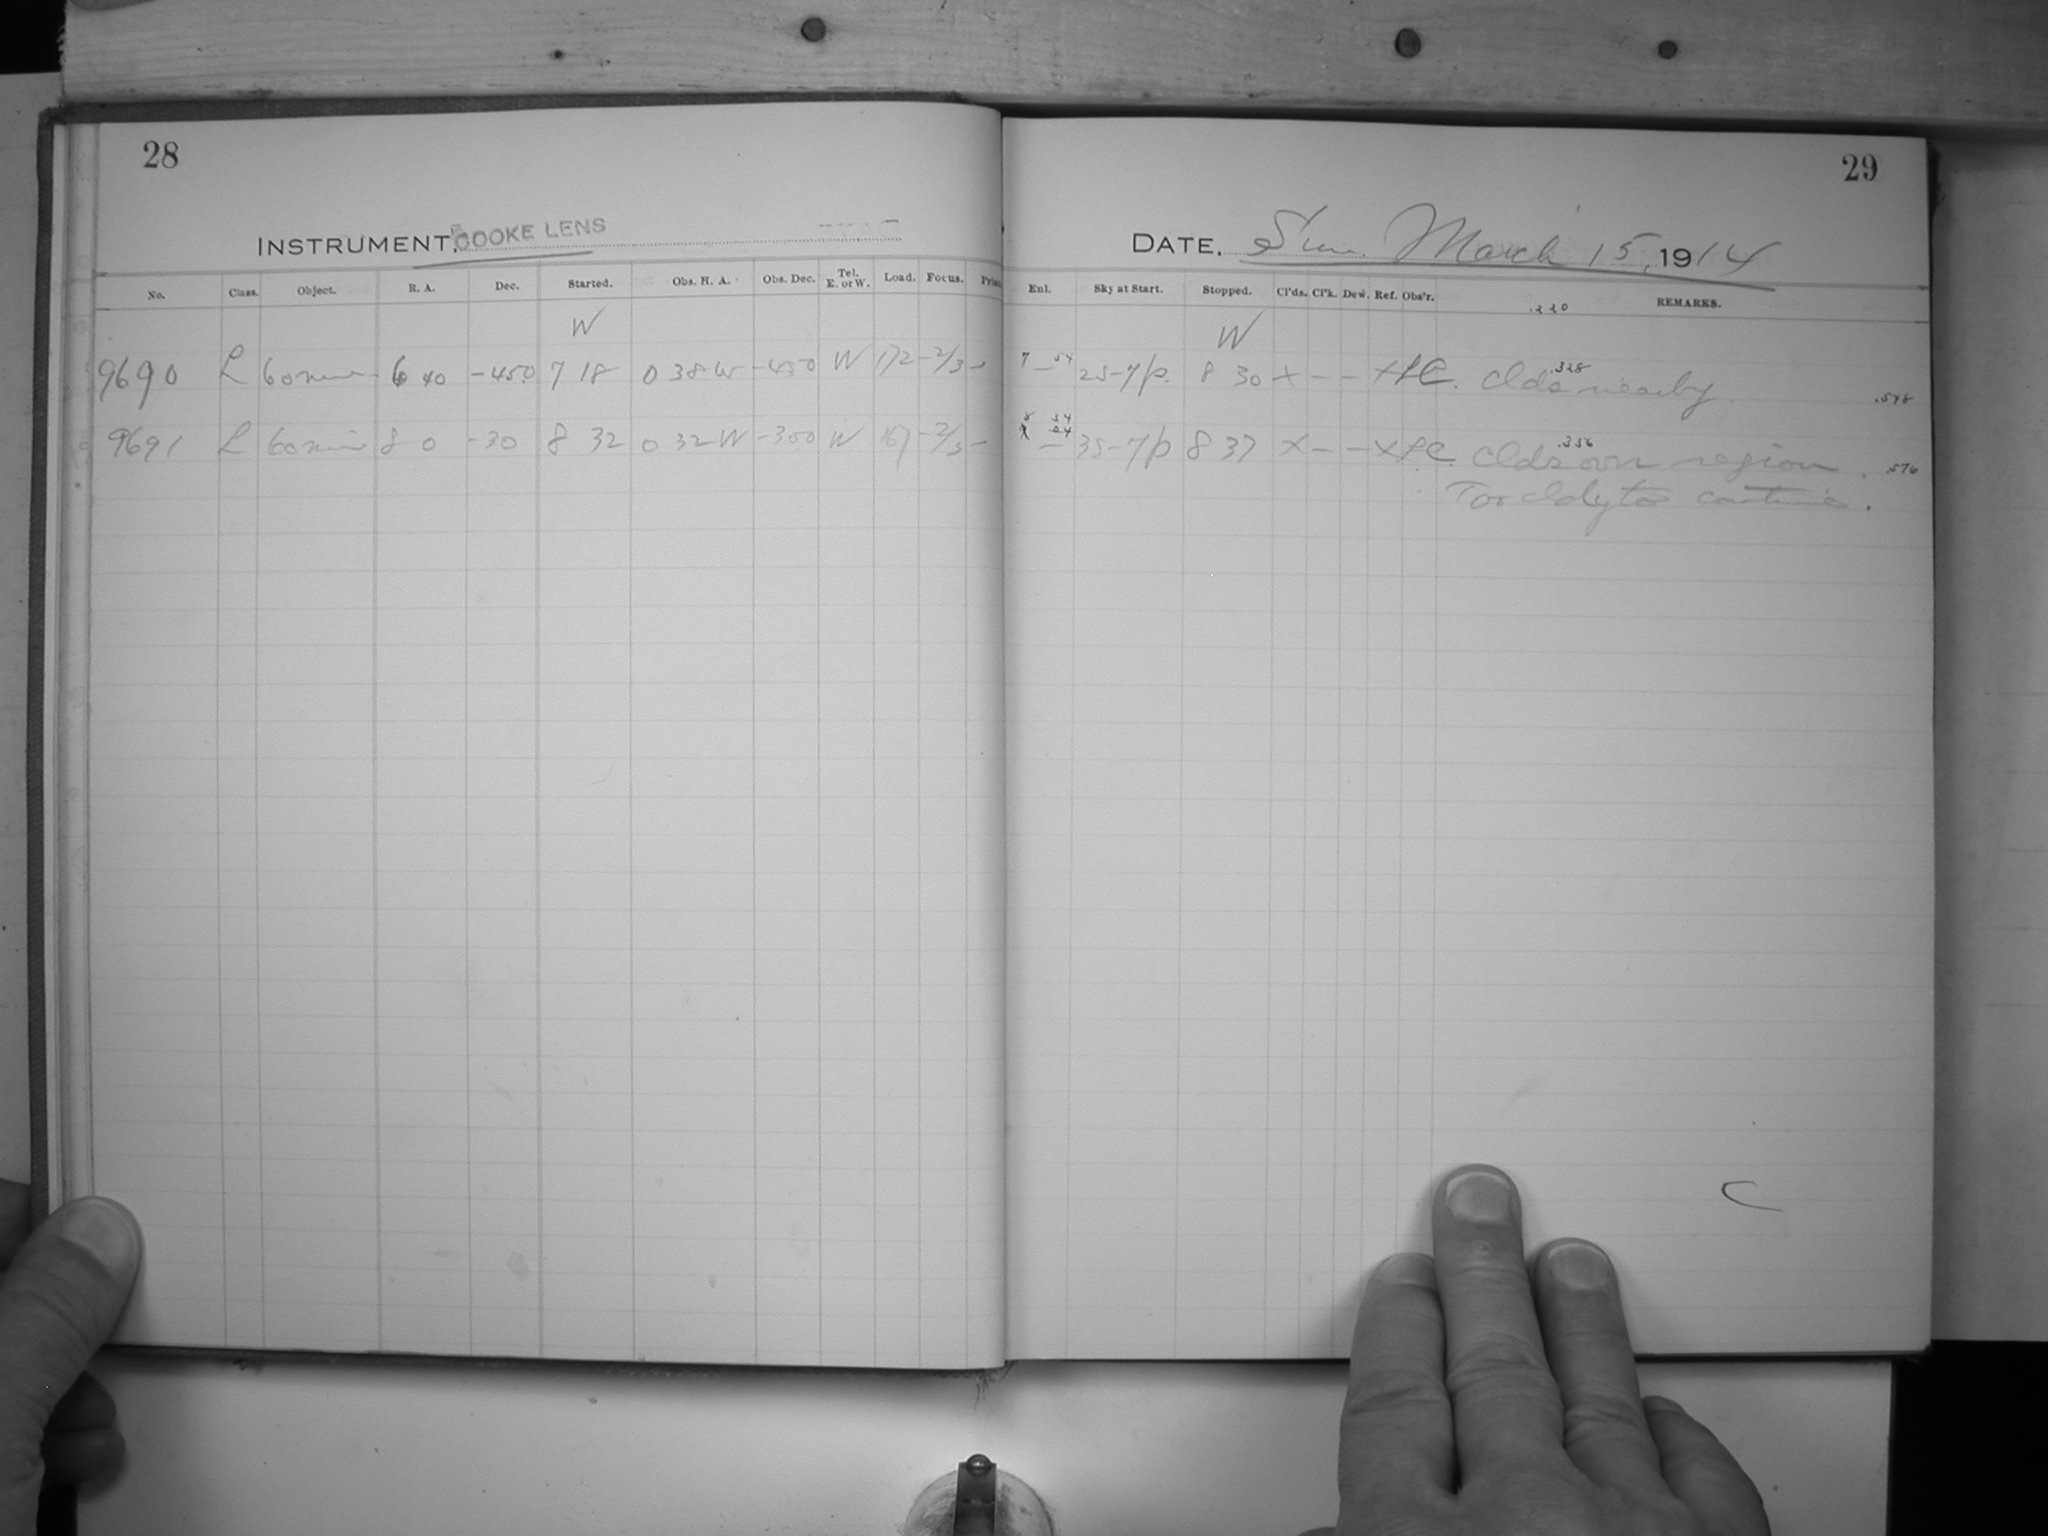 28
29
INSTRUMENT, COOKE LENS
DATE, Sun. March 15, 1914
No. Class. Object. R. A. Dec. Started. Obs. H. A. Obs. Dec. Tel. E. or W. Load. Focus.
Enl. Sky at Start. Stopped. Cl'ds. Cl'k. Dew. Ref. Obs'r. .320 REMARKS.
W W
9690 L 60 min 6 40 -45.0 7 18 0 38 W -45 0 W 172 -2/3 -
7 54 25-7/p. 8 30 x - - x Clds nearby .328 .548
9691 L 60 min 8 0 -30 8 32 0 32 W -30 0 W 167 -2/3 -
8 34 35-7/p 8 37 x - - x Clds over region .356 .576
Too cldy to continue.
C